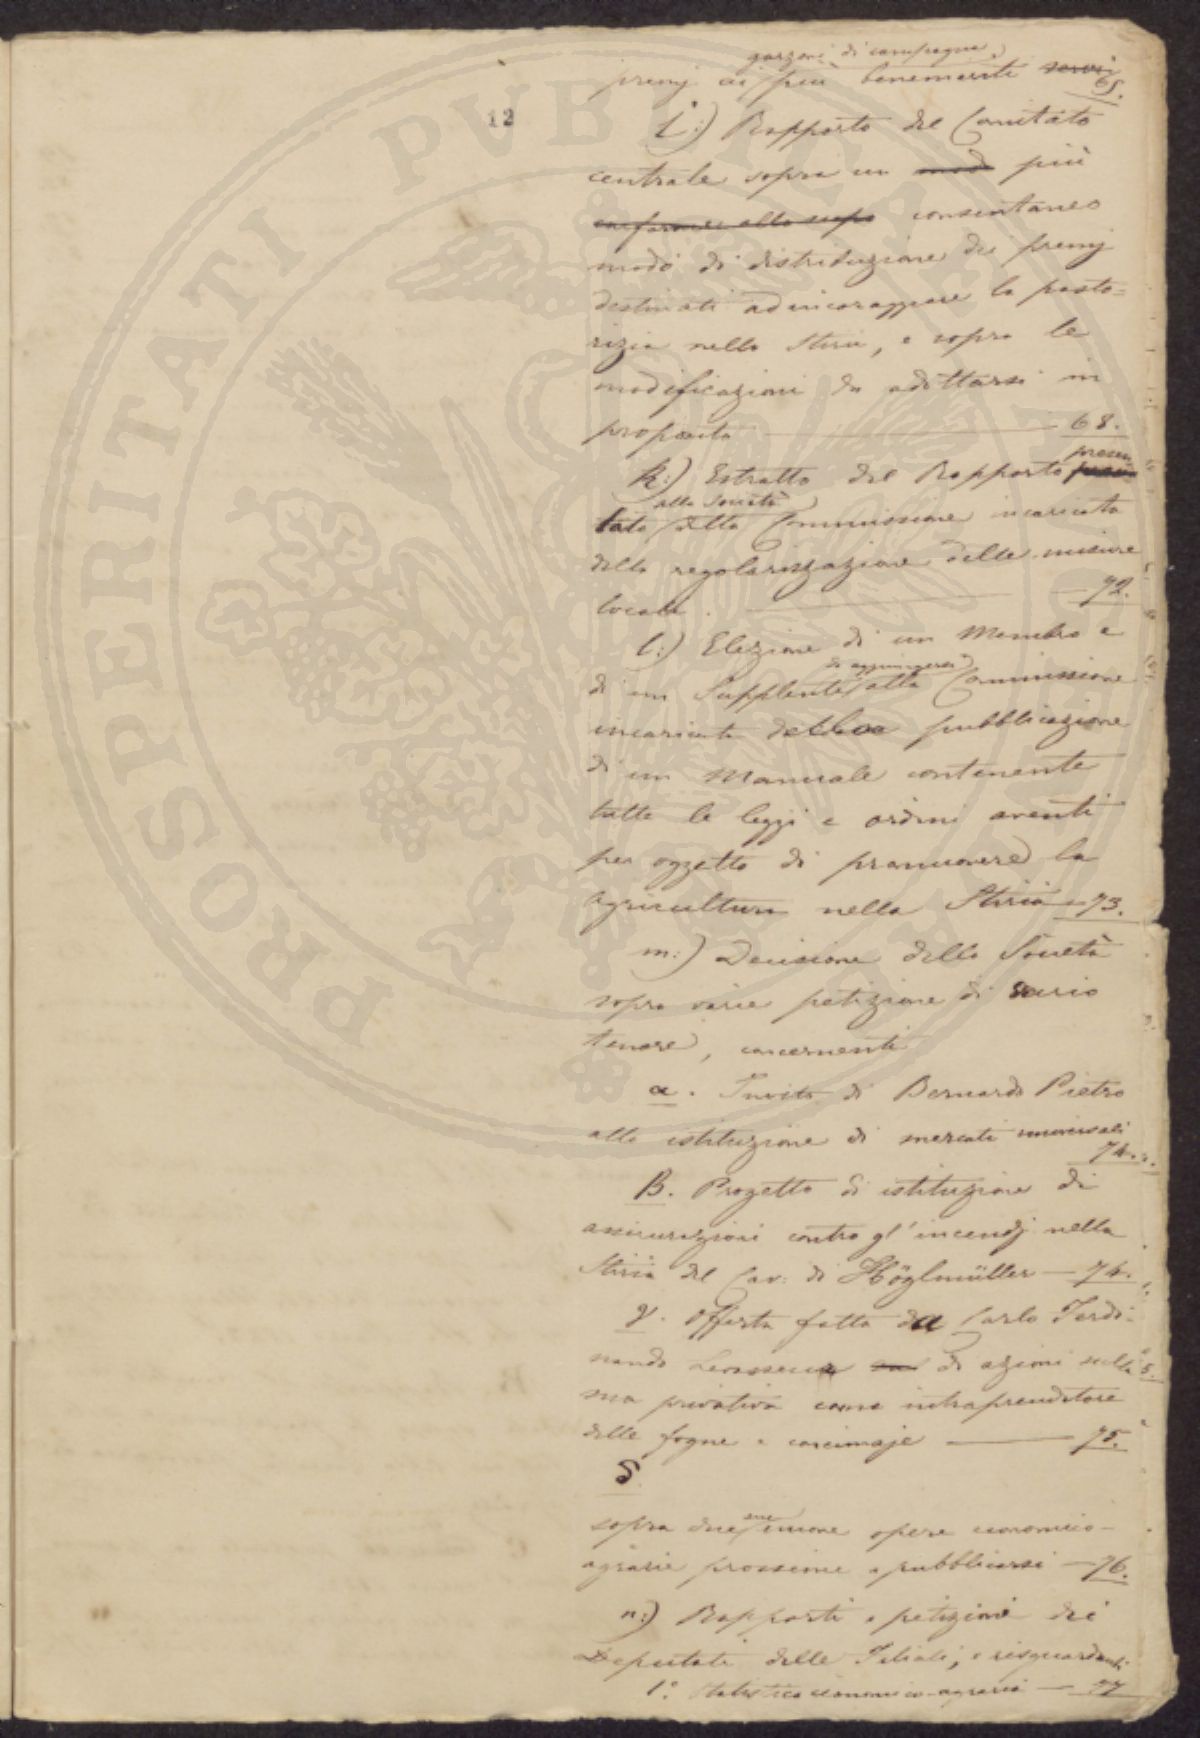 12
garzoni di campagna
premj ai più benemeriti servi
65.
i:) Rapporto del Comitato
centrale sopra un modo più
conforme allo scopo consentaneo
modo di distribuzione dei premj
destinati ad incoraggiare la pasto=
rizia nella Stiria, e sopra le
modificazioni da adottarsi in
proposito — 68.
k:) Estratto del Rapporto presen
alla Società
tato dalla Commissione incaricata
della regolarizzazione delle misure
locali. — 72.
l:) Elezione di un Membro e
da aggiungersi
di un Supplente alla Commissione
incaricata della pubblicazione
di un Manuale contenente
tutte le leggi e ordini aventi
per oggetto di promuovere la
agricultura nella Stiria — 73.
m:) Decisione della Società
sopra varie petizione di vario
tenore, concernenti
α. Invito di Bernardo Pietro
alla istituzione di mercati universali
74.
β. Progetto di istituzione di
assicurazioni contro gl'incendj nella
Stiria del Cav: di Höglmüller — 74.
γ. Offerta fatta da Carlo Ferdi-
nando di azioni sulla
sua privativa come intraprenditore
delle fogne e concimaje — 75.
δ
sopra due sue nuove opere economico-
agrarie prossime a pubblicarsi — 76.
n:) Rapporti e petizioni dei
Deputati delle Filiali, e risguardanti
1.° Statistica economico-agraria — 77
PROSPERITATI PVBLICAE